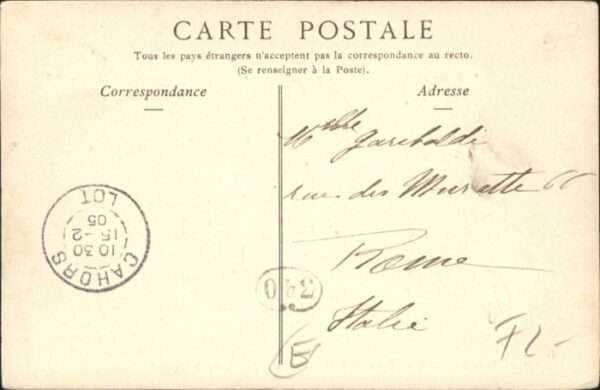 CARTE POSTALE
Tous les pays étrangers n'acceptent pas la correspondance au recto.
(Se renseigner à la Poste).
Correspondance
Adresse
Mlle
Garibaldi
rue des Muratte 66
Rome
Italie
CAHORS
10 30
15 -2
05
LOT
340
E